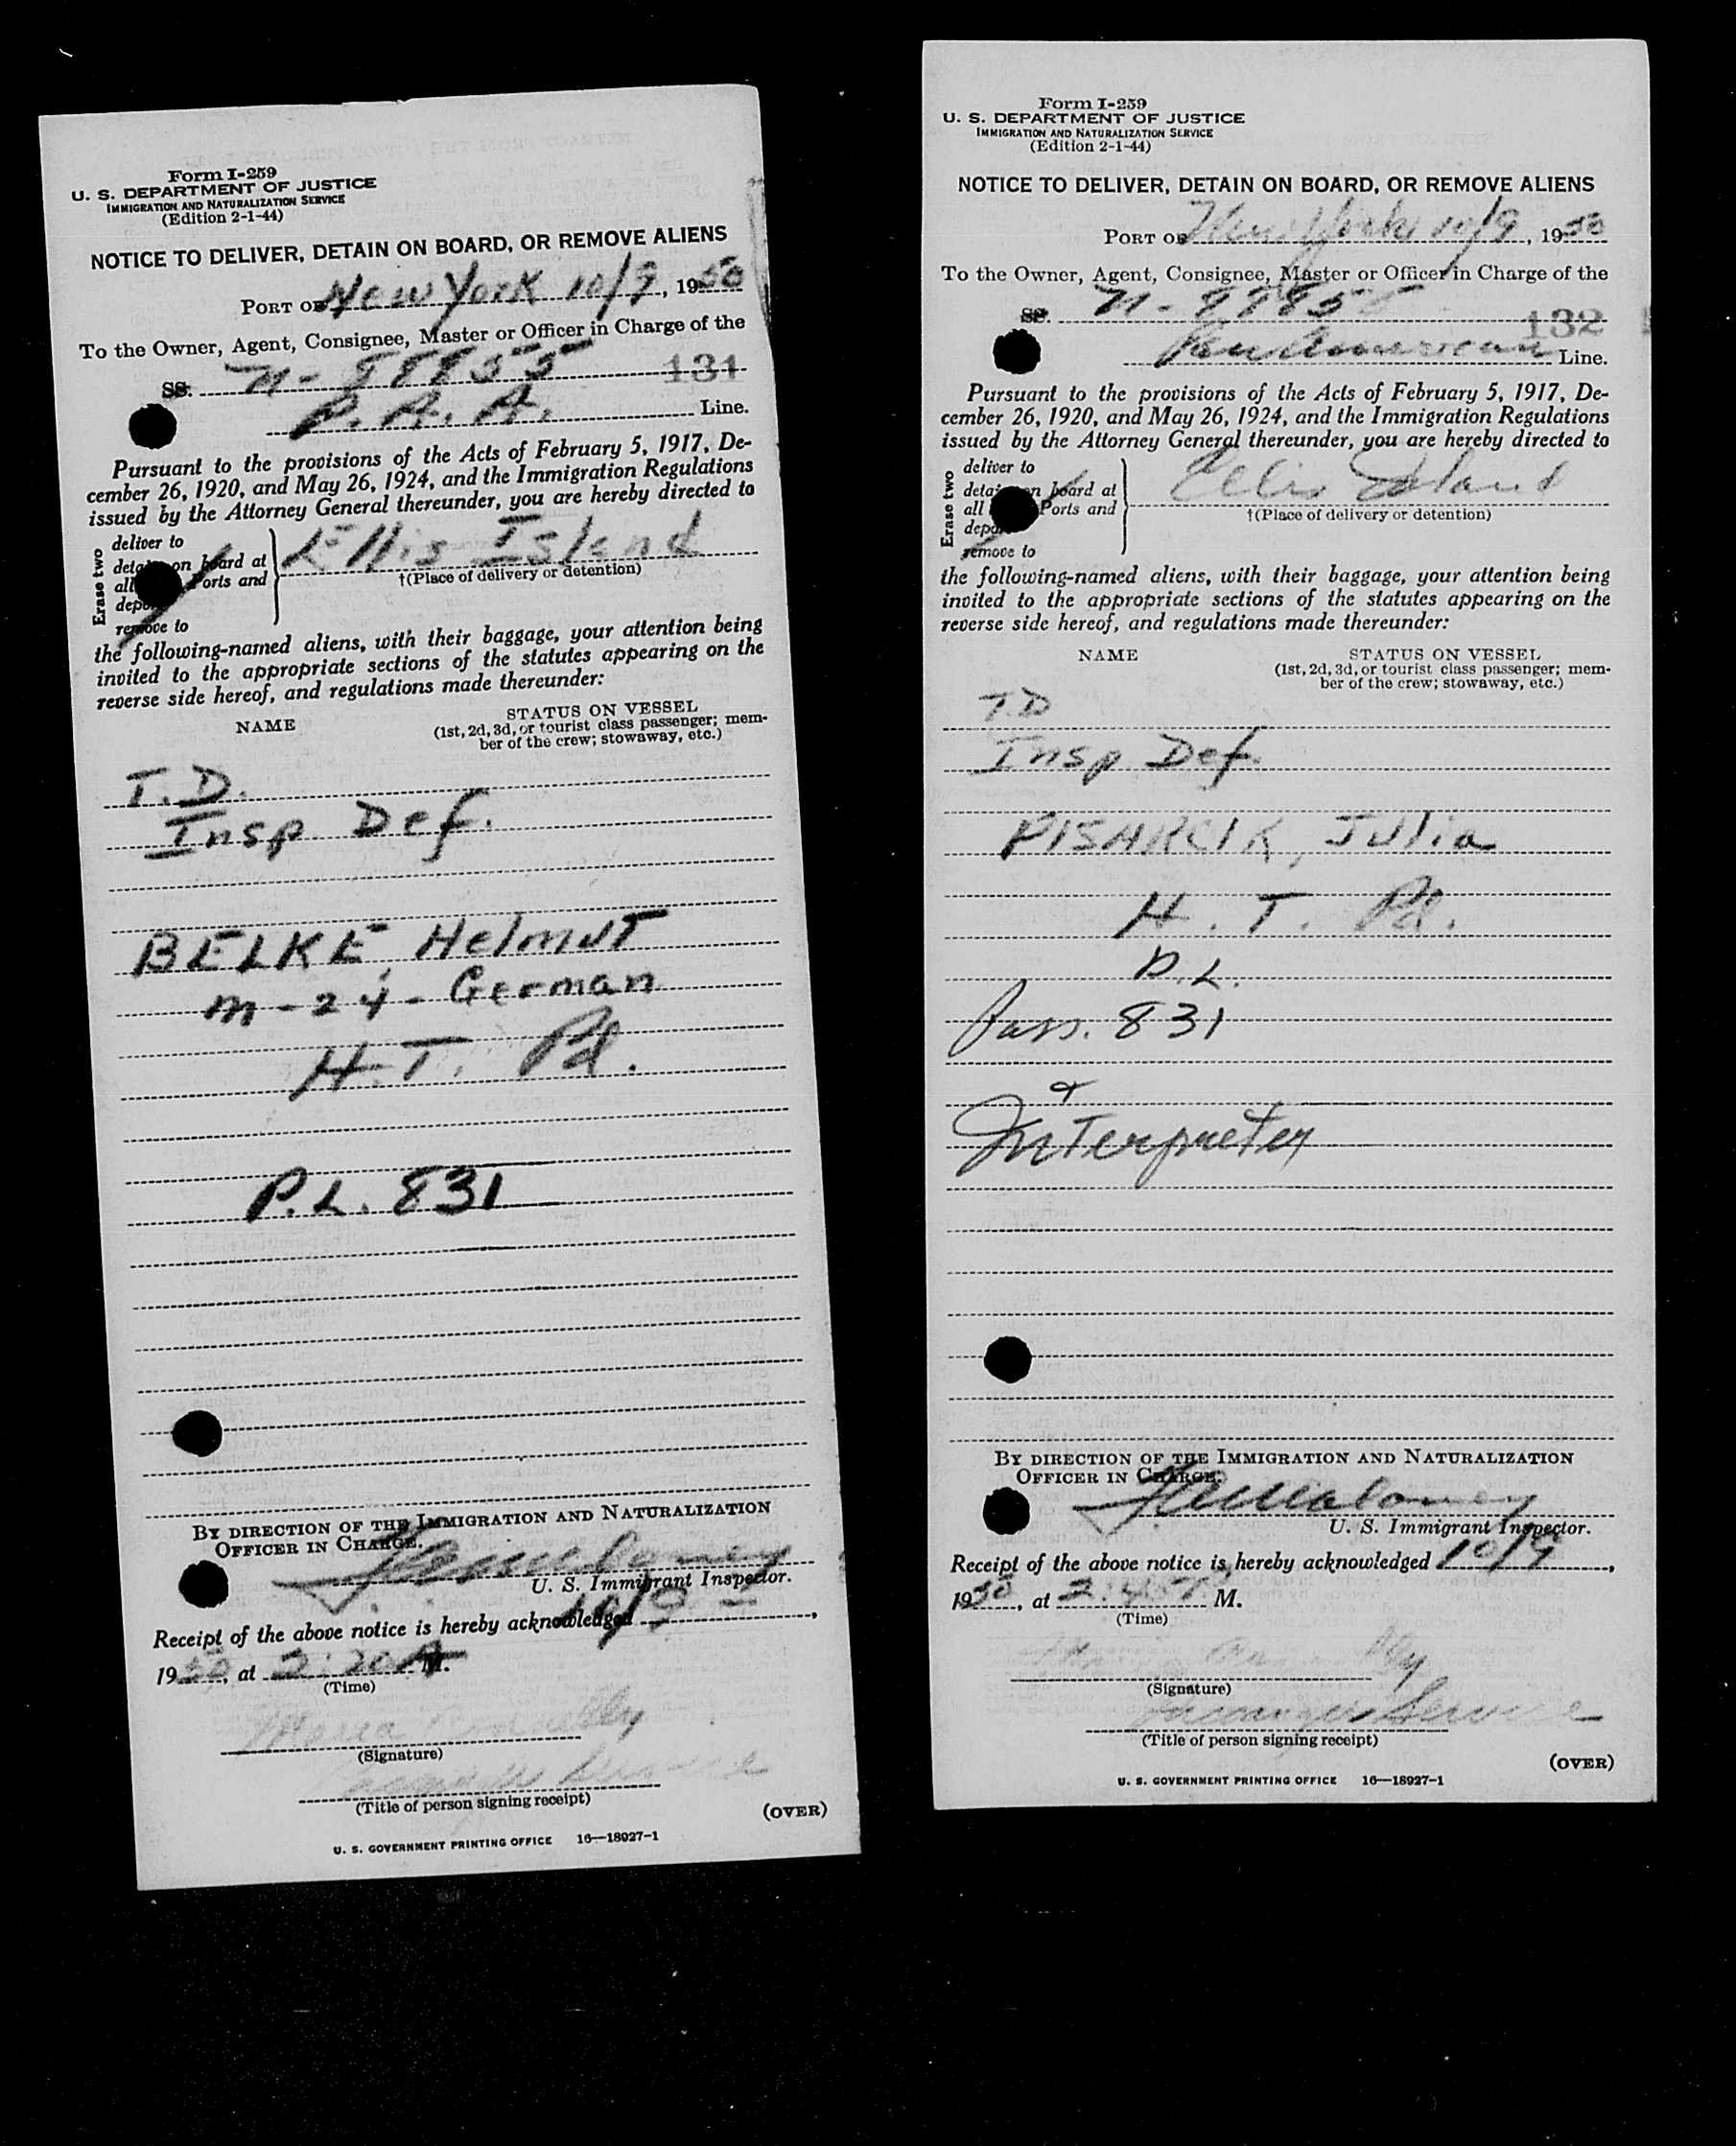 Form I-259
U. S. DEPARTMENT OF JUSTICE
IMMIGRATION AND NATURALIZATION SERVICE
(Edition 2-1-44)
NOTICE TO DELIVER, DETAIN ON BOARD, OR REMOVE ALIENS
PORT OF New York 10/9, 1950
To the Owner, Agent, Consignee, Master or Officer in Charge of the
SS. N-88855 131
P. A. A. Line.
Pursuant to the provisions of the Acts of February 5, 1917, De-
cember 26, 1920, and May 26, 1924, and the Immigration Regulations
issued by the Attorney General thereunder, you are hereby directed to
Erase two
deliver to
on board at
all Ports and
remove to
Ellis Island
†(Place of delivery or detention)
the following-named aliens, with their baggage, your attention being
invited to the appropriate sections of the statutes appearing on the
reverse side hereof, and regulations made thereunder:
NAME STATUS ON VESSEL
(1st, 2d, 3d, or tourist class passenger; mem-
ber of the crew; stowaway, etc.)
T.D.
Insp Def.
BELKE, Helmut
M-24-German
H.T. Pd.
P.L. 831
BY DIRECTION OF THE IMMIGRATION AND NATURALIZATION
OFFICER IN CHARGE.
U. S. Immigrant Inspector.
Receipt of the above notice is hereby acknowledged 10/9,
1950, at 2:20 A M.
(Time)
(Signature)
(Title of person signing receipt)
(OVER)
U. S. GOVERNMENT PRINTING OFFICE 16—18927-1
Form I-259
U. S. DEPARTMENT OF JUSTICE
IMMIGRATION AND NATURALIZATION SERVICE
(Edition 2-1-44)
NOTICE TO DELIVER, DETAIN ON BOARD, OR REMOVE ALIENS
PORT OF New York 10/9, 1950
To the Owner, Agent, Consignee, Master or Officer in Charge of the
SS. N-88855 132
Pan American Line.
Pursuant to the provisions of the Acts of February 5, 1917, De-
cember 26, 1920, and May 26, 1924, and the Immigration Regulations
issued by the Attorney General thereunder, you are hereby directed to
Erase two
deliver to
on board at
all Ports and
remove to
Ellis Island
†(Place of delivery or detention)
the following-named aliens, with their baggage, your attention being
invited to the appropriate sections of the statutes appearing on the
reverse side hereof, and regulations made thereunder:
NAME STATUS ON VESSEL
(1st, 2d, 3d, or tourist class passenger; mem-
ber of the crew; stowaway, etc.)
T.D
Insp Def.
PISARCIK, Julia
H. T. Pd.
P.L.
Pass. 831
&
Interpreter
BY DIRECTION OF THE IMMIGRATION AND NATURALIZATION
OFFICER IN CHARGE.
U. S. Immigrant Inspector.
Receipt of the above notice is hereby acknowledged 10/9,
1950, at M.
(Time)
(Signature)
Passenger Service
(Title of person signing receipt)
(OVER)
U. S. GOVERNMENT PRINTING OFFICE 16—18927-1